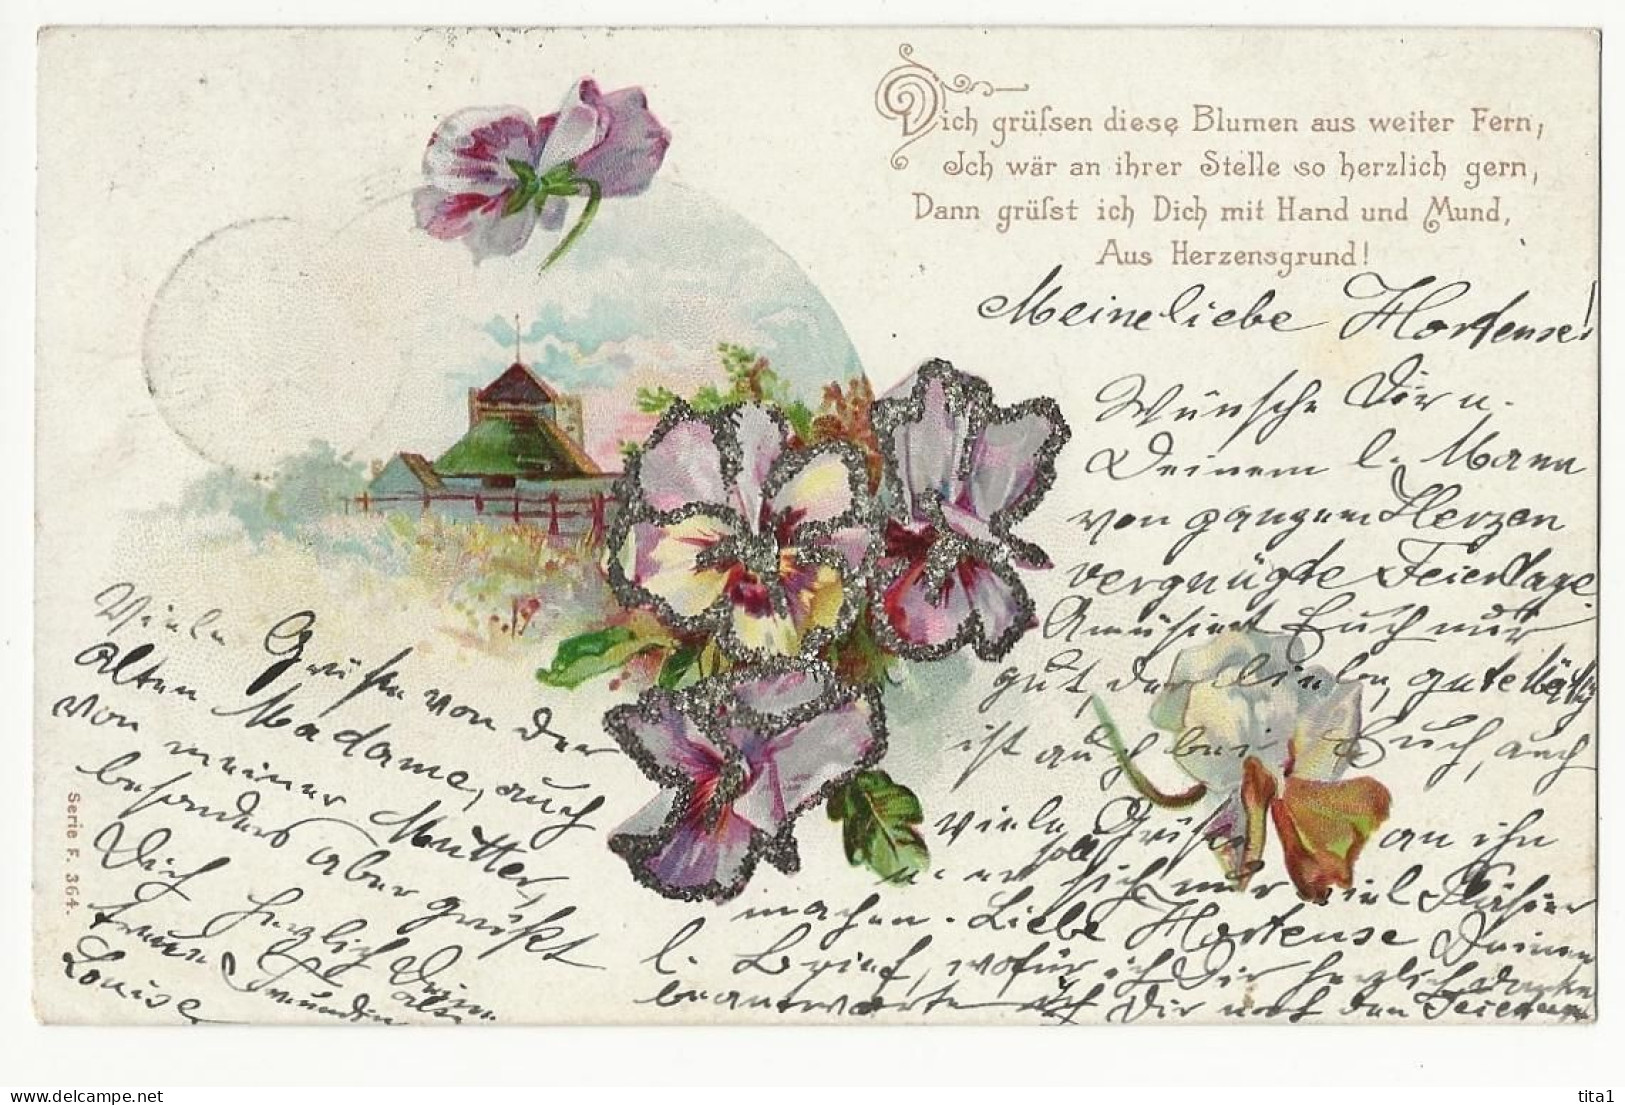 Dich grüſsen diese Blumen aus weiter Fern,
Ich wär an ihrer Stelle so herzlich gern,
Dann grüſst ich Dich mit Hand und Mund,
Aus Herzensgrund!
Meine liebe Hortense!
Wünsche Dir u.
Deinem l. Mann
von ganzem Herzen
vergnügte Feiertage.
Amüsiert Euch nur
gut, der lieben, gute
ist auch bei Euch, auch
viele Grüße an ihn
u. er soll sich nur viel
machen. Liebe Hortense Deinen
l. Brief, wofür ich Dir herzlich danke
beantworte ich Dir nach den Feiertagen
Viele Grüße von der
alten Madame, auch
von meiner Mutter,
besonders aber grüßt
Dich herzlich Deine
treue Freundin
Louise
Serie F. 364.
tita1